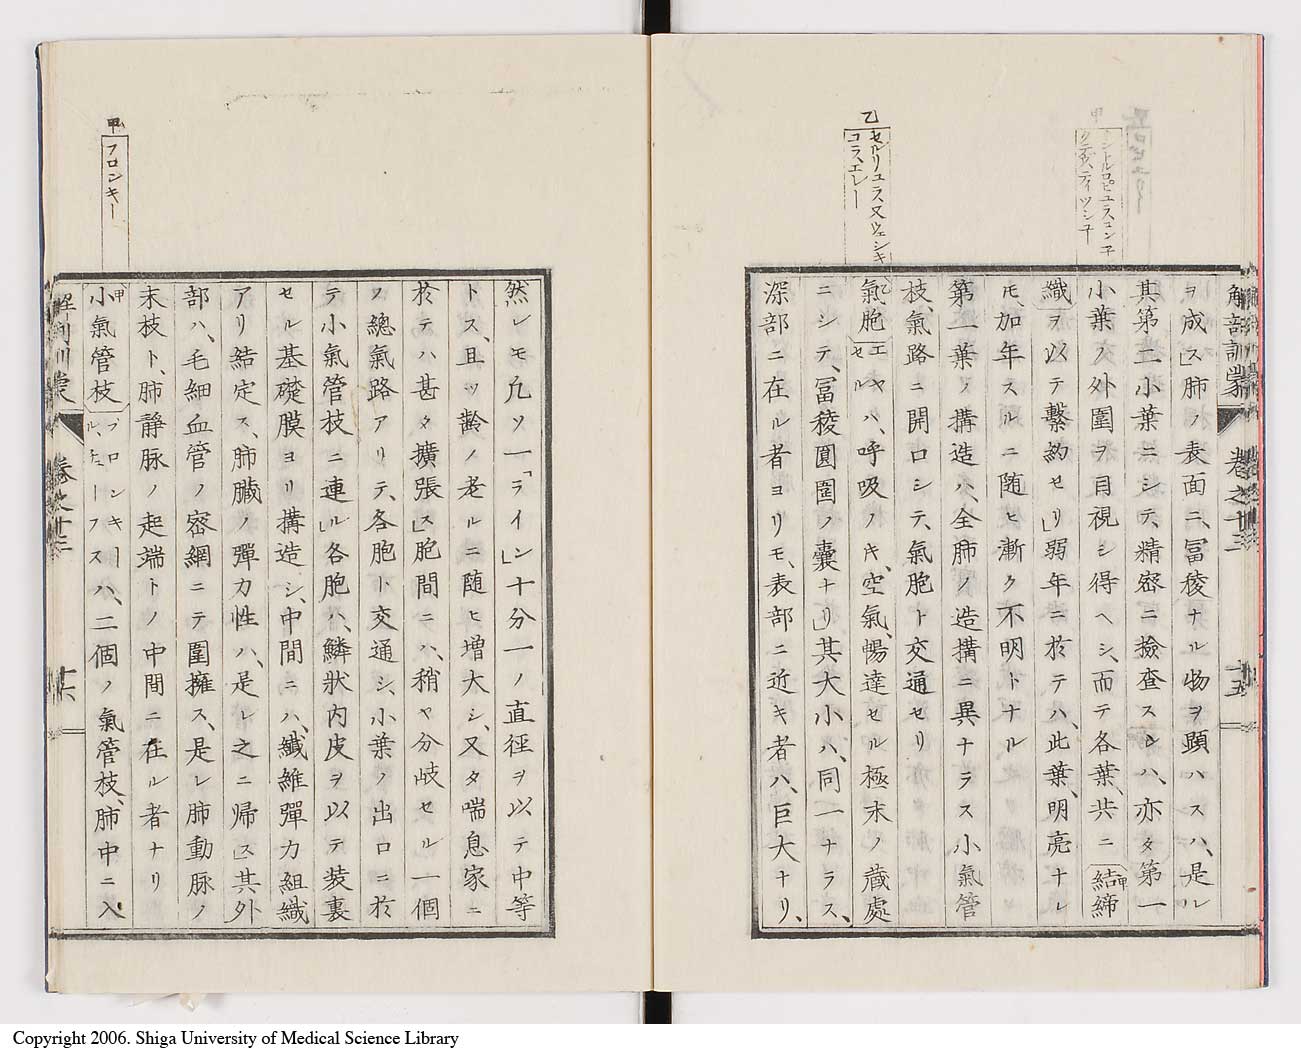 解剖訓蒙 卷之十二 十五
ヲ成ス」肺ノ表面ニ、冨稜ナル物ヲ顕ハスハ、是レ
其第二小葉ニシテ、精密ニ撿查スレハ、亦タ第一
小葉ノ外圍ヲ目視シ得ヘシ、而テ各葉、共ニ甲結締
甲
織ヲ以テ繋約セリ」弱年ニ於テハ、此葉、明亮ナレ
𪜈、加年スルニ随ヒ漸ク不明トナル
第一葉ノ搆造ハ、全肺ノ造搆ニ異ナラス小氣管
枝、氣路ニ開口シテ、氣胞ト交通セリ
乙
セルリュラス又ウェシキ
コラスエレー
氣乙胞エヤセルハ、呼吸ノキ、空氣、暢達セル極末ノ蔵處
ニシテ、冨稜圓圍ノ囊ナリ」其大小ハ、同一ナラス、
深部ニ在ル者ヨリモ、表部ニ近キ者ハ、巨大ナリ、
然レモ凢ソ一「ライン」十分一ノ直徑ヲ以テ中等
トス、且ツ齢ノ老ルニ随ヒ増大シ、又タ喘息家ニ
於テハ甚タ擴張ス」胞間ニハ、稍ヤ分歧セル一個
ノ總氣路アリテ、各胞ト交通シ、小葉ノ出口ニ於
テ小氣管枝ニ連ル」各胞ハ、鱗狀内皮ヲ以テ装裏
セル基礎膜ヨリ搆造シ、中間ニハ、纎維彈力組織
アリ結定ス、肺臓ノ彈力性ハ、是レ之ニ帰ス」其外
部ハ、毛細血管ノ密網ニテ圍擁ス、是レ肺動脉ノ
末枝ト、肺静脉ノ起端トノ中間ニ在ル者ナリ
甲
フロンキー
甲小氣管枝ブロンキールターフスハ、二個ノ氣管枝、肺中ニ入
卷之十二 十六
Copyright 2006. Shiga University of Medical Science Library